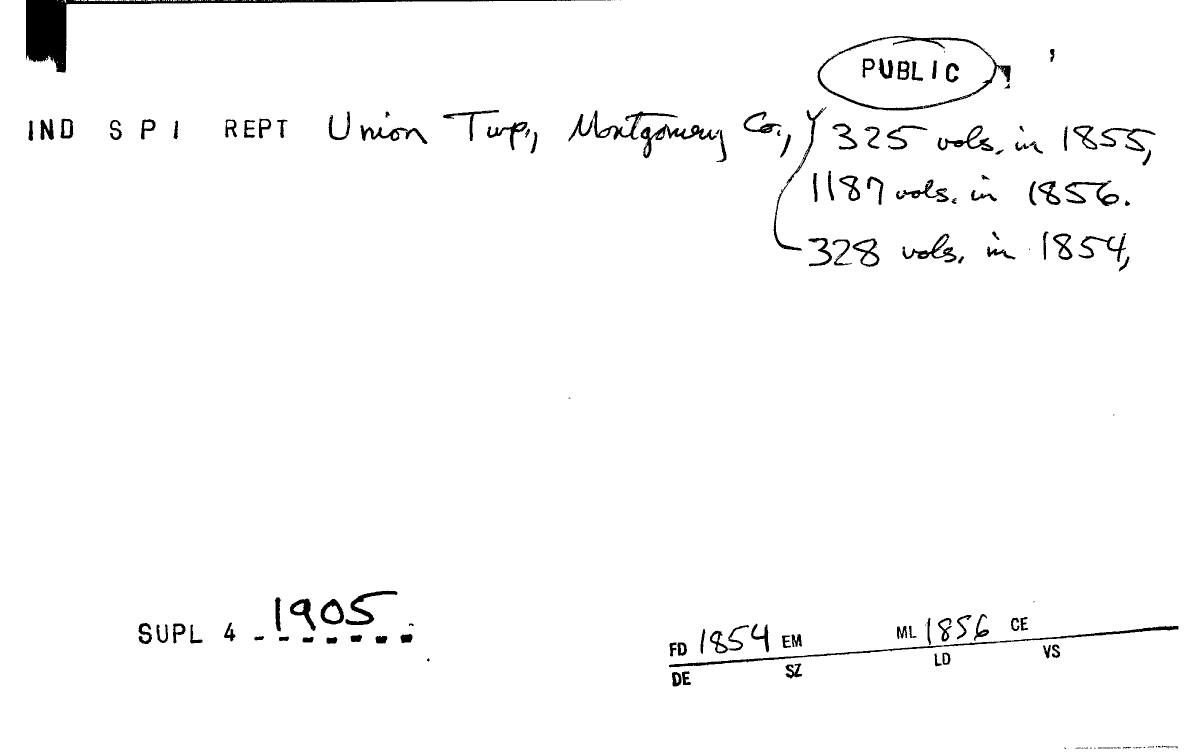 PUBLIC
IND S P I REPT Union Twp., Montgomery Co., 325 vols. in 1855,
1187 vols. in 1856.
328 vols. in 1854,
SUPL 4 1905
FD 1854 EM ML 1856 CE
DE SZ LD VS